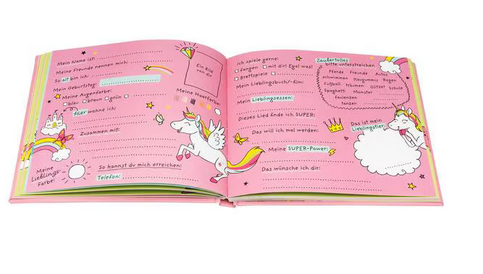 Mein Name ist:
Meine Freunde nennen mich:
So alt bin ich:
Mein Geburtstag:
Meine Augenfarbe:
blau braun grün
Hier wohne ich:
Zusammen mit:
Meine
Lieblings-
Farbe:
So kannst du mich erreichen:
Telefon:
Ein Bild
von mir
Meine Haarfarbe:
Ich spiele gern:
Fangen mit dir! Egal was!
Brettspiele
Mein Lieblingsbuch/-film:
Mein Lieblingsessen:
Dieses Lied finde ich SUPER:
Das will ich mal werden:
Meine SUPER-Power:
Das wünsche ich dir:
Zaubertolles
bitte unterstreichen:
Pferde Freunde Autos
schwimmen Kaugummi Regen
Fußball Blumen Ostern Schule
Spaghetti Monster
Tanzen
Das ist mein
Lieblingstier: